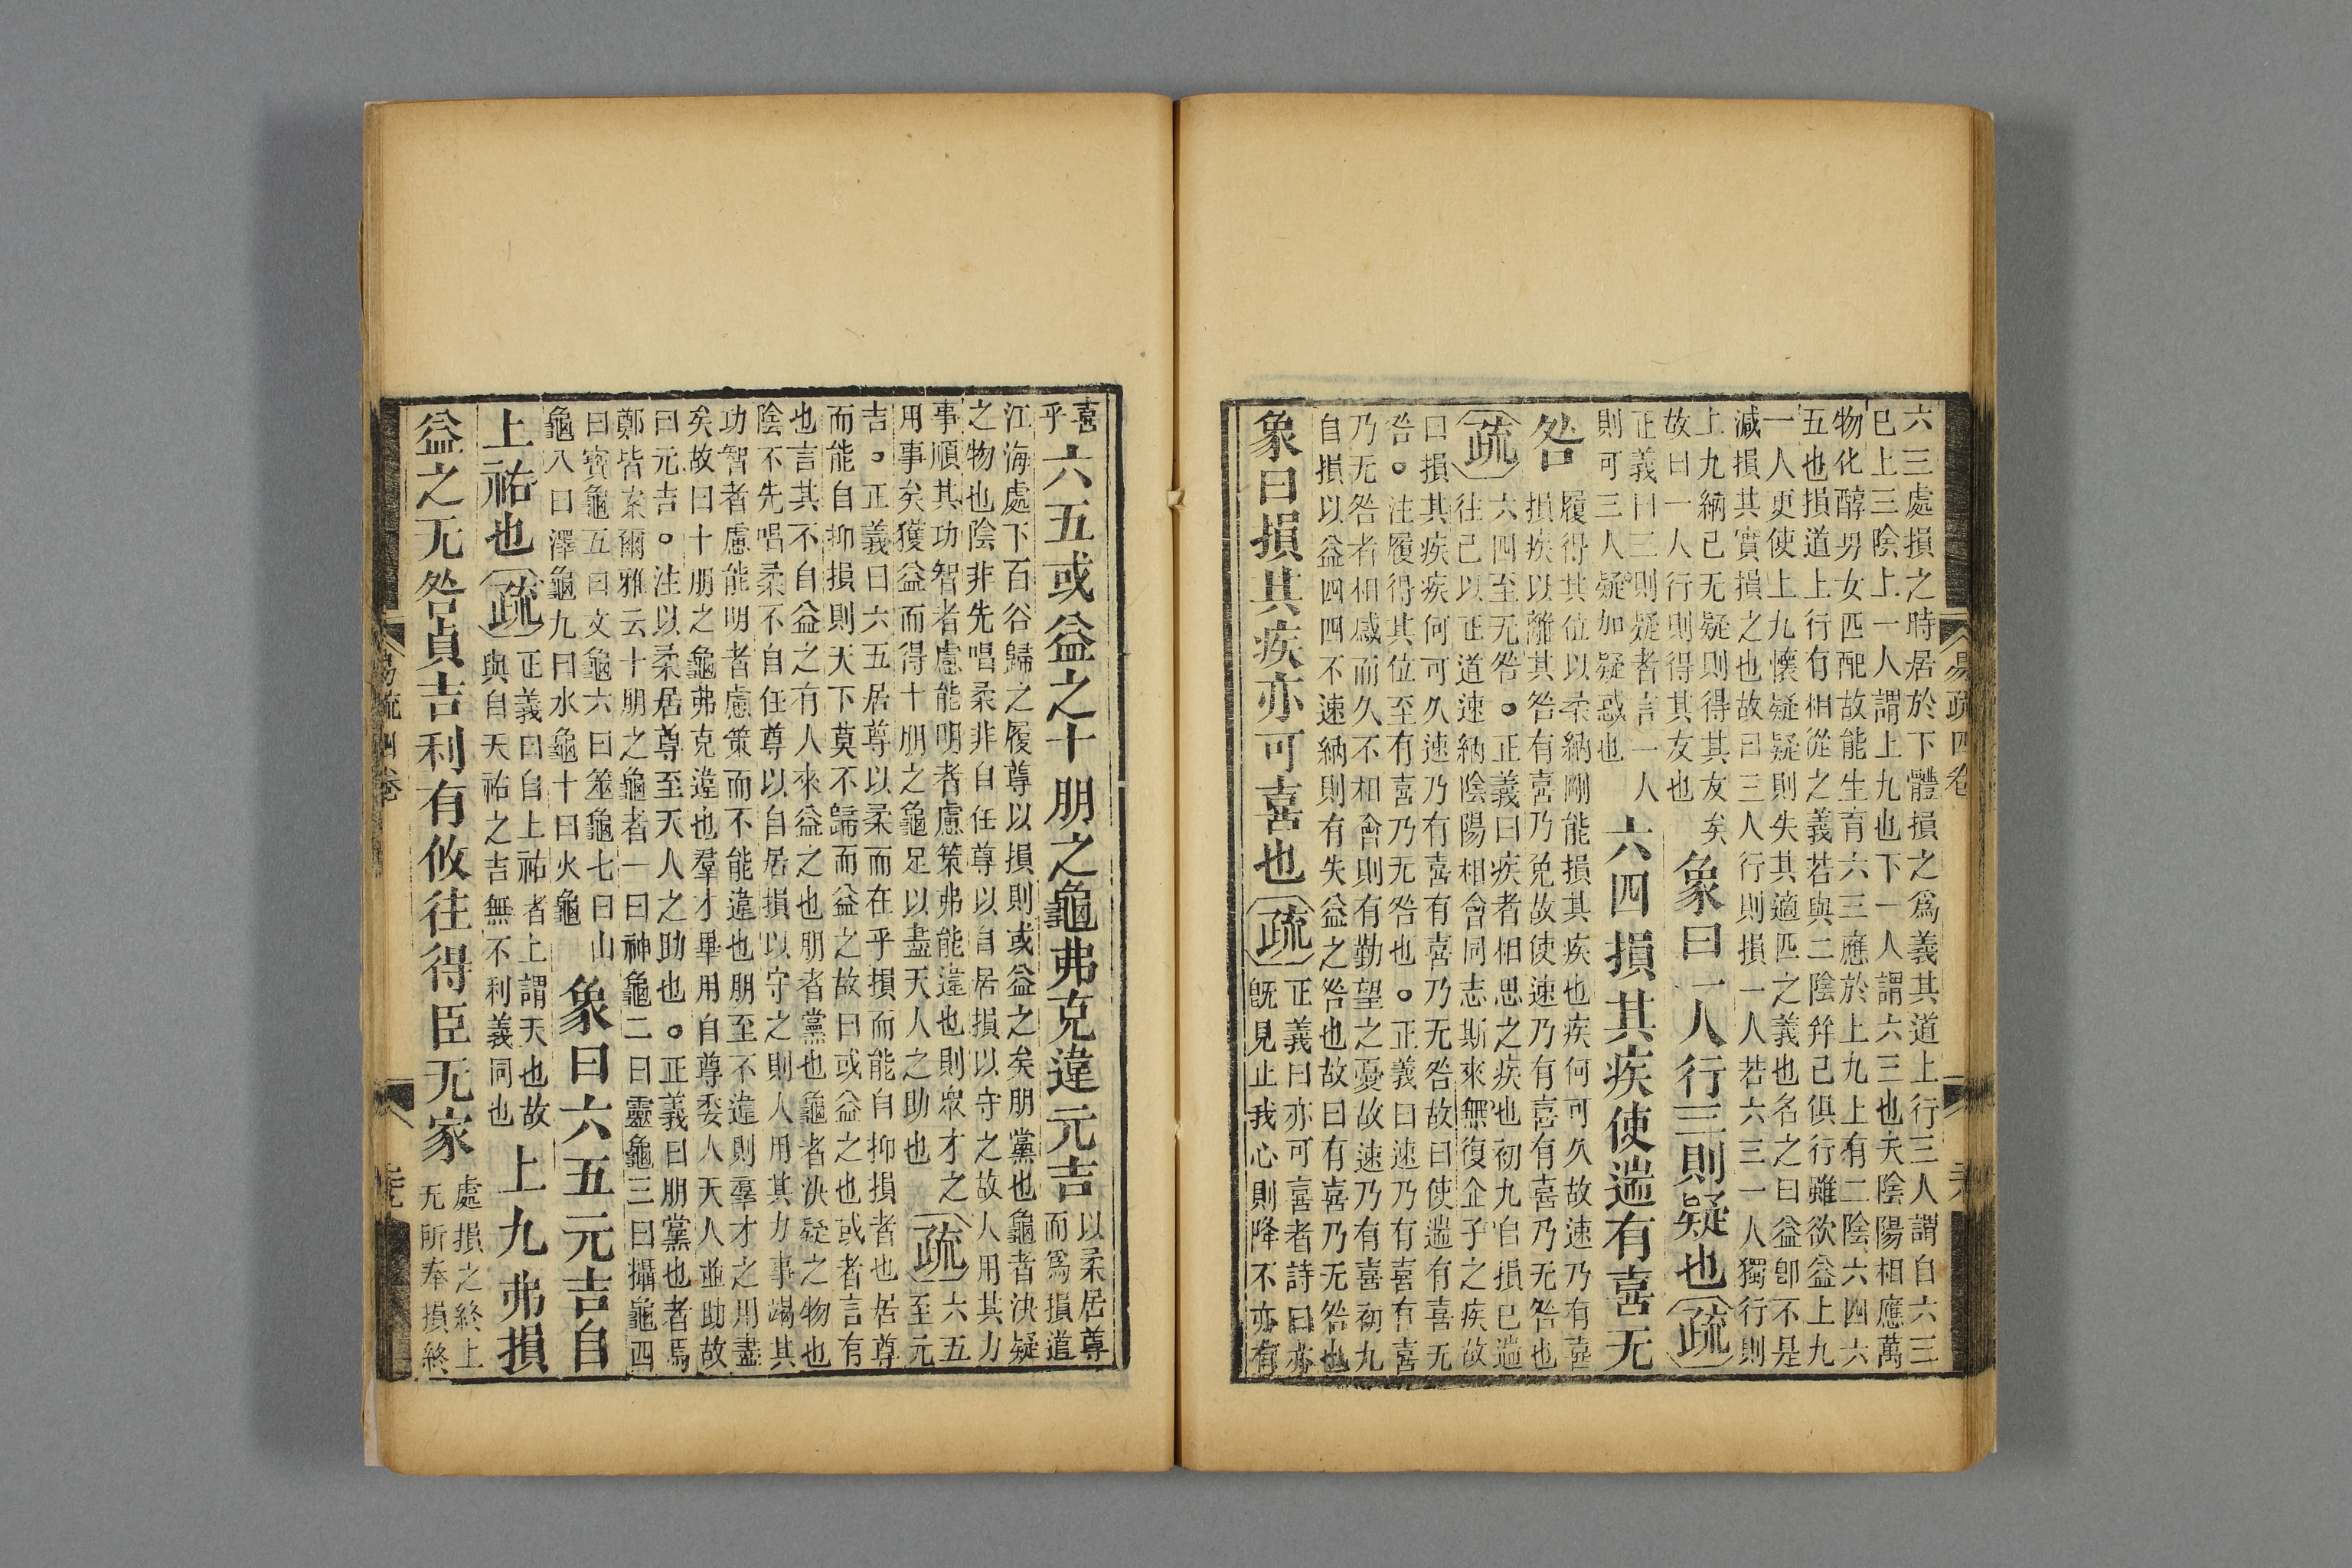 六三處損之時居於下體損之爲義其道上行三人謂自六三
已上三陰上一人謂上九也下一人謂六三也夭陰陽相應萬
物化醇男女匹配故能生育六三應於上九上有二陰六四六
五也損道上行有相從之義若與二陰幷己俱行雖欲益上九
一人更使上九懷疑疑則失其適匹之義也名之曰益卽不是
減損其實損之也故曰三人行則損一人若六三一人獨行則
上九納己无疑則得其友矣
故曰一人行則得其友也
象曰一人行三則疑也疏
正義曰三則疑者言一人
則可三人疑加疑惑也
六四損其疾使遄有喜无
咎
履得其位以柔納剛能損其疾也疾何可久故速乃有喜
損疾以離其咎有喜乃免故使速乃有喜有喜乃无咎也
疏
六四至无咎。正義曰疾者相思之疾也初九自損已遄
往己以正道速納陰陽相會同志斯來無復企子之疾故
曰損其疾疾何可久速乃有喜有喜乃无咎故曰使遄有喜无
咎。注履得其位至有喜乃无咎也。正義曰速乃有喜有喜
乃无咎者相感而久不相會則有勤望之憂故速乃有喜初九
自損以益四四不速納則有失益之咎也故曰有喜乃无咎也
象曰損其疾亦可喜也疏
正義曰亦可喜者詩曰亦
旣見止我心則降不亦有
喜
乎
六五或益之十朋之龜弗克違元吉
以柔居尊
而爲損道
江海處下百谷歸之履尊以損則或益之矣朋黨也龜者決疑
之物也陰非先唱柔非自任尊以自居損以守之故人用其力
事順其功智者慮能明者慮策弗能違也則衆才之
用事矣獲益而得十朋之龜足以盡天人之助也
疏
六五
至元
吉。正義曰六五居尊以柔而在乎損而能自抑損者也居尊
而能自抑損則天下莫不歸而益之故曰或益之也或者言有
也言其不自益之有人來益之也朋者黨也龜者決疑之物也
陰不先唱柔不自任尊以自居損以守之則人用其力事竭其
功智者慮能明者慮策而不能違也朋至不違則羣才之用盡
矣故曰十朋之龜弗克違也羣才畢用自尊委人天人並助故
曰元吉。注以柔居尊至天人之助也。正義曰朋黨也者馬
鄭皆案爾雅云十朋之龜者一曰神龜二曰靈龜三曰攝龜四
曰寶龜五曰文龜六曰筮龜七曰山
龜八曰澤龜九曰水龜十曰火龜
象曰六五元吉自
上祐也疏
正義曰自上祐者上謂天也故
與自天祐之吉無不利義同也
上九弗損
益之无咎貞吉利有攸往得臣无家
處損之終上
无所奉損終
易疏四卷